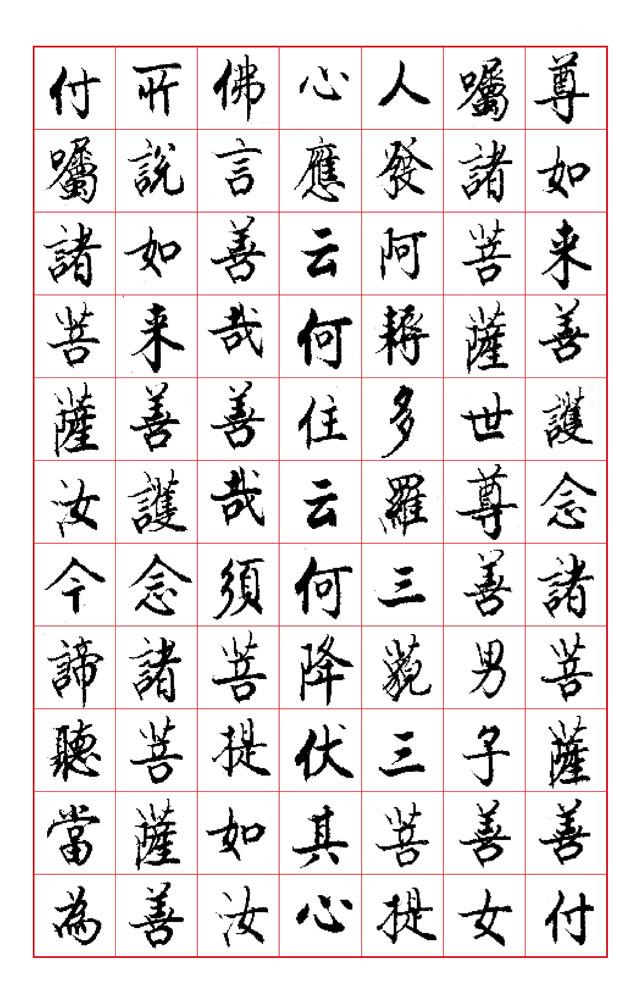 尊如来善護念諸菩薩善付
囑諸菩薩世尊善男子善女
人發阿耨多羅三藐三菩提
心應云何住云何降伏其心
佛言善哉善哉須菩提如汝
所說如来善護念諸菩薩善
付囑諸菩薩汝今諦聽當為